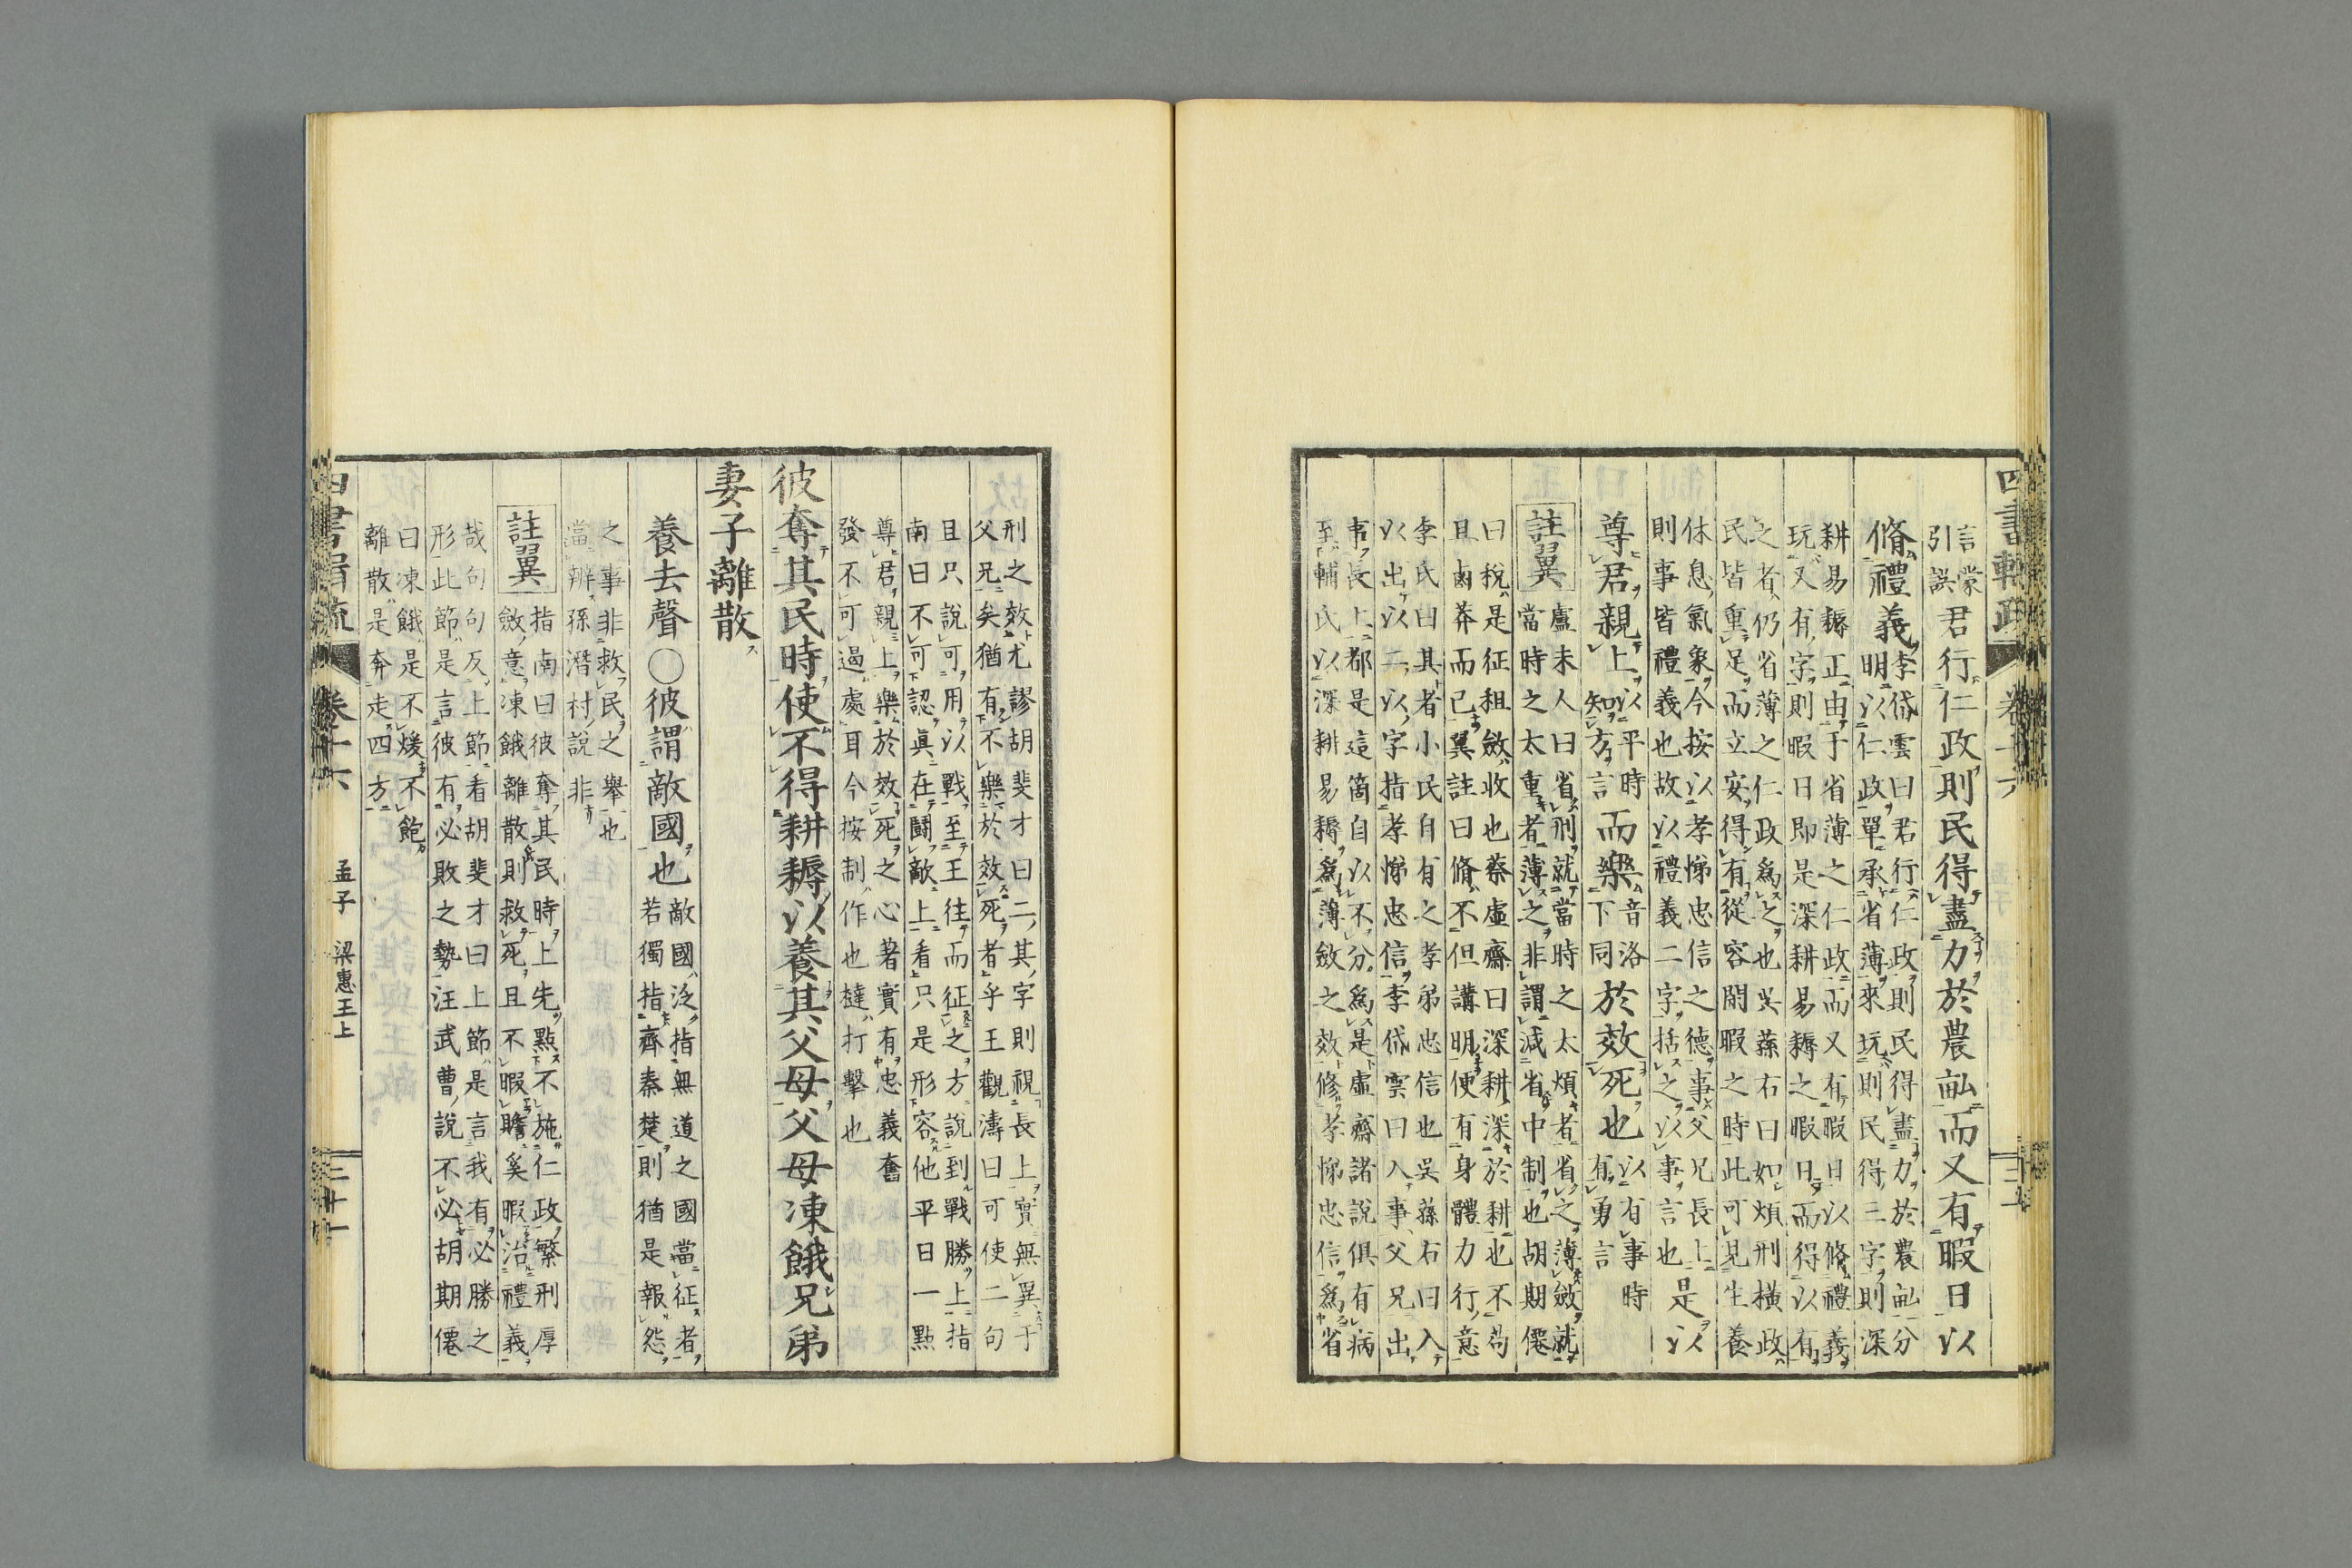 言蒙引誤君行仁政則民得盡力於農畝而又有暇日以
脩禮義李岱雲曰君行仁政則民得盡力於農畝分
明以仁政單承省薄來玩則民得三字則深
耕易耨正由于省薄之仁政而又有暇日以脩禮義
玩又有字則暇日即是深耕易耨之暇日而得以有
之者仍省薄之仁政爲之也吳蓀右曰如煩刑橫政
民皆重足而立安得有從容閒暇之時此可見生養
休息氣象今按以孝悌忠信之德事父兄長上
則事皆禮義也故以禮義二字括之以事言也
是以
尊君親上以平時知方言而樂音洛下同於效死也以有事時有勇言
註翼
盧未人曰省刑就當時之太煩者省之薄斂就
當時之太重者薄之非謂減省中制也胡期僊
曰稅是征租斂收也蔡虛齋曰深耕深於耕也不苟
且鹵莽而已翼註曰脩不但講明便有身體力行意
李氏曰其者小民自有之孝弟忠信也吳蓀右曰入
以出以二以字指孝悌忠信李岱雲曰入事父兄出
事長上都是這箇自以不分爲是虛齋諸說俱有病
至輔氏以深耕易耨爲薄斂之效修孝悌忠信爲省
刑之效尤謬胡斐才曰二其字則視長上實無異于
父兄矣猶有不樂於效死者乎王觀濤曰可使二句
且只說可用以戰至王往而征之方說到戰勝上指
南曰不可認眞在鬪敵上看只是形容他平日一點
尊君親上樂於效死之心著實有忠義奮
發不可遏處耳今按制作也撻打擊也
彼奪其民時使不得耕耨以養其父母父母凍餓兄弟
妻子離散
養去聲〇彼謂敵國也敵國泛指無道之國當征者若獨指齊秦楚則猶是報怨
之事非救民之舉也
當辨孫潛村說非
註翼
指南曰彼奪其民時上先點不施仁政繁刑厚
斂意凍餓離散則救死且不暇贍奚暇治禮義
哉句句反上節看胡斐才曰上節是言我有必勝之
形此節是言彼有必敗之勢汪武曹說不必胡期僊
曰凍餓是不煖不飽
離散是奔走四方
卷十六
孟子 梁惠王上
三十一